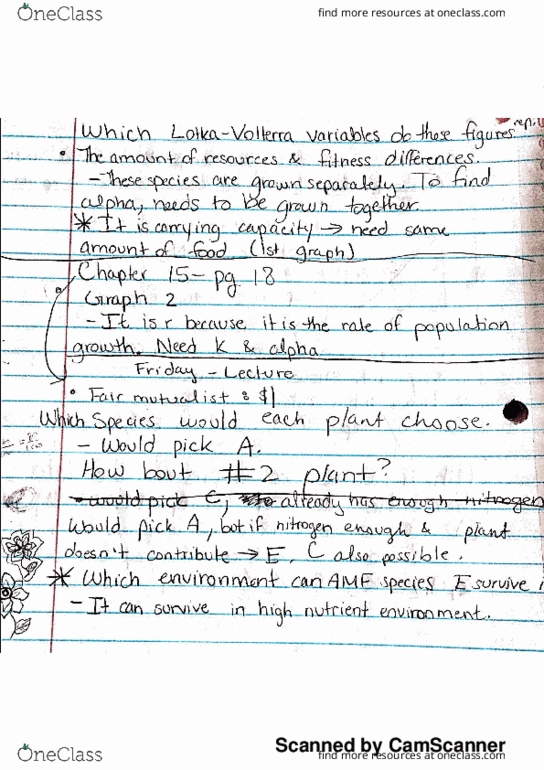 OneClass
find more resources at oneclass.com
Which Lotka-Volterra variables do these figures
• The amount of resources & fitness differences.
- These species are grown separately. To find
alpha, needs to be grown together
* It is carrying capacity → need same
amount of food (1st graph)
Chapter 15- pg. 18
Graph 2
- It is r because it is the rate of population
growth. Need K & alpha
Friday - Lecture
• Fair mutualist : $1
Which Species would each plant choose.
- Would pick A.
How bout #2 plant?
- would pick C, already has enough nitrogen
Would pick A, but if nitrogen enough & plant
doesn't contribute → E. C also possible.
* Which environment can AMF species E survive i
- It can survive in high nutrient environment.
Scanned by CamScanner
OneClass
find more resources at oneclass.com